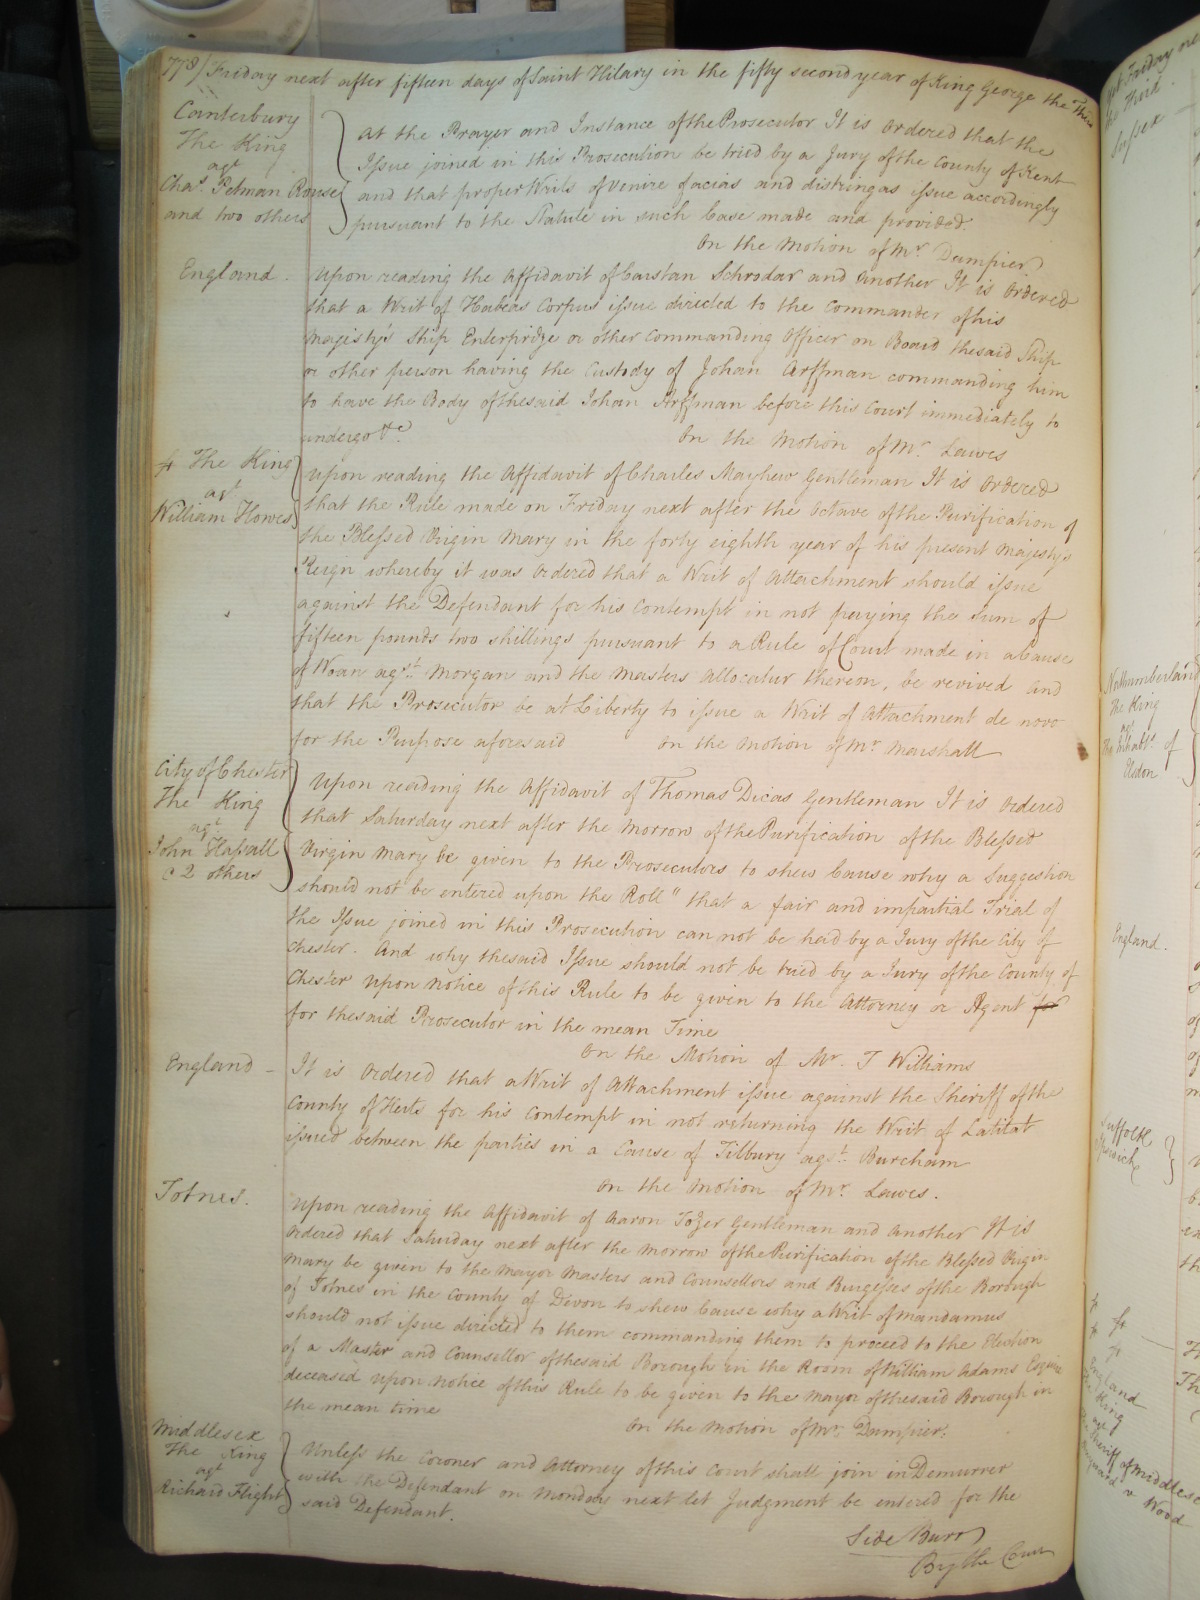 778/ Friday next after fifteen days of Saint Hilary in the fifty second year of King George the Third
Canterbury
The King
agt
Chas. Petman Rouse
and two others
At the Prayer and Instance of the Prosecutor It is Ordered that the
Issue joined in this Prosecution be tried by a Jury of the County of Kent
and that proper Writs of Venire facias and distringas issue accordingly
pursuant to the Statute in such Case made and provided.
On the Motion of Mr. Dampier
England
Upon reading the Affidavit of Carstan Schrodar and another It is Ordered
that a Writ of Habeas Corpus issue directed to the Commander of his
Majesty's Ship Enterpridge or other Commanding Officer on Board the said Ship
or other person having the Custody of Johan Arffman commanding him
to have the Body of the said Johan Arffman before this Court immediately to
undergo &c.
On the Motion of Mr. Lawes
The King
agt
William Howes
Upon reading the Affidavit of Charles Mayhew Gentleman It is Ordered
that the Rule made on Friday next after the Octave of the Purification of
the Blessed Virgin Mary in the forty eighth year of his present Majesty's
Reign whereby it was Ordered that a Writ of Attachment should issue
against the Defendant for his Contempt in not paying the Sum of
fifteen pounds two shillings pursuant to a Rule of Court made in a Cause
of Noan agst. Morgan and the Masters Allocatur thereon, be revived and
that the Prosecutor be at Liberty to issue a Writ of Attachment de novo
for the Purpose aforesaid
On the Motion of Mr. Marshall
City of Chester
The King
agt
John Hassall
& 2 others
Upon reading the Affidavit of Thomas Dicas Gentleman It is Ordered
that Saturday next after the Morrow of the Purification of the Blessed
Virgin Mary be given to the Prosecutors to shew Cause why a Suggestion
should not be entered upon the Roll "that a fair and impartial Trial of
the Issue joined in this Prosecution can not be had by a Jury of the City of
Chester. And why the said Issue should not be tried by a Jury of the County of
Chester Upon Notice of this Rule to be given to the Attorney or Agent for
for the said Prosecutor in the mean Time
On the Motion of Mr. T Williams
England
It is Ordered that a Writ of Attachment issue against the Sheriff of the
County of Herts for his Contempt in not returning the Writ of Latitat
issued between the parties in a Cause of Tilbury agst. Burcham
On the Motion of Mr. Lawes.
Totnes.
Upon reading the Affidavit of Aaron Tozer Gentleman and Another It is
Ordered that Saturday next after the Morrow of the Purification of the Blessed Virgin
Mary be given to the Mayor Masters and Counsellors and Burgesses of the Borough
of Totnes in the County of Devon to shew Cause why a Writ of Mandamus
should not issue directed to them commanding them to proceed to the Election
of a Master and Counsellor of the said Borough in the Room of William Adams Esquire
deceased upon Notice of this Rule to be given to the Mayor of the said Borough in
the mean time
On the Motion of Mr. Dampier.
Middlesex
The King
agt
Richard Flight
Unless the Coroner and Attorney of this Court shall join in Demurrer
with the Defendant on Monday next let Judgment be entered for the
said Defendant.
Side Barr
By the Court
Friday
the Third
Sussex
Northumberland
The King
agt
The Inhabts. of
England.
Suffolk
Ipswich
England
The King
agt
The Sheriff of Middlesex
v Wood